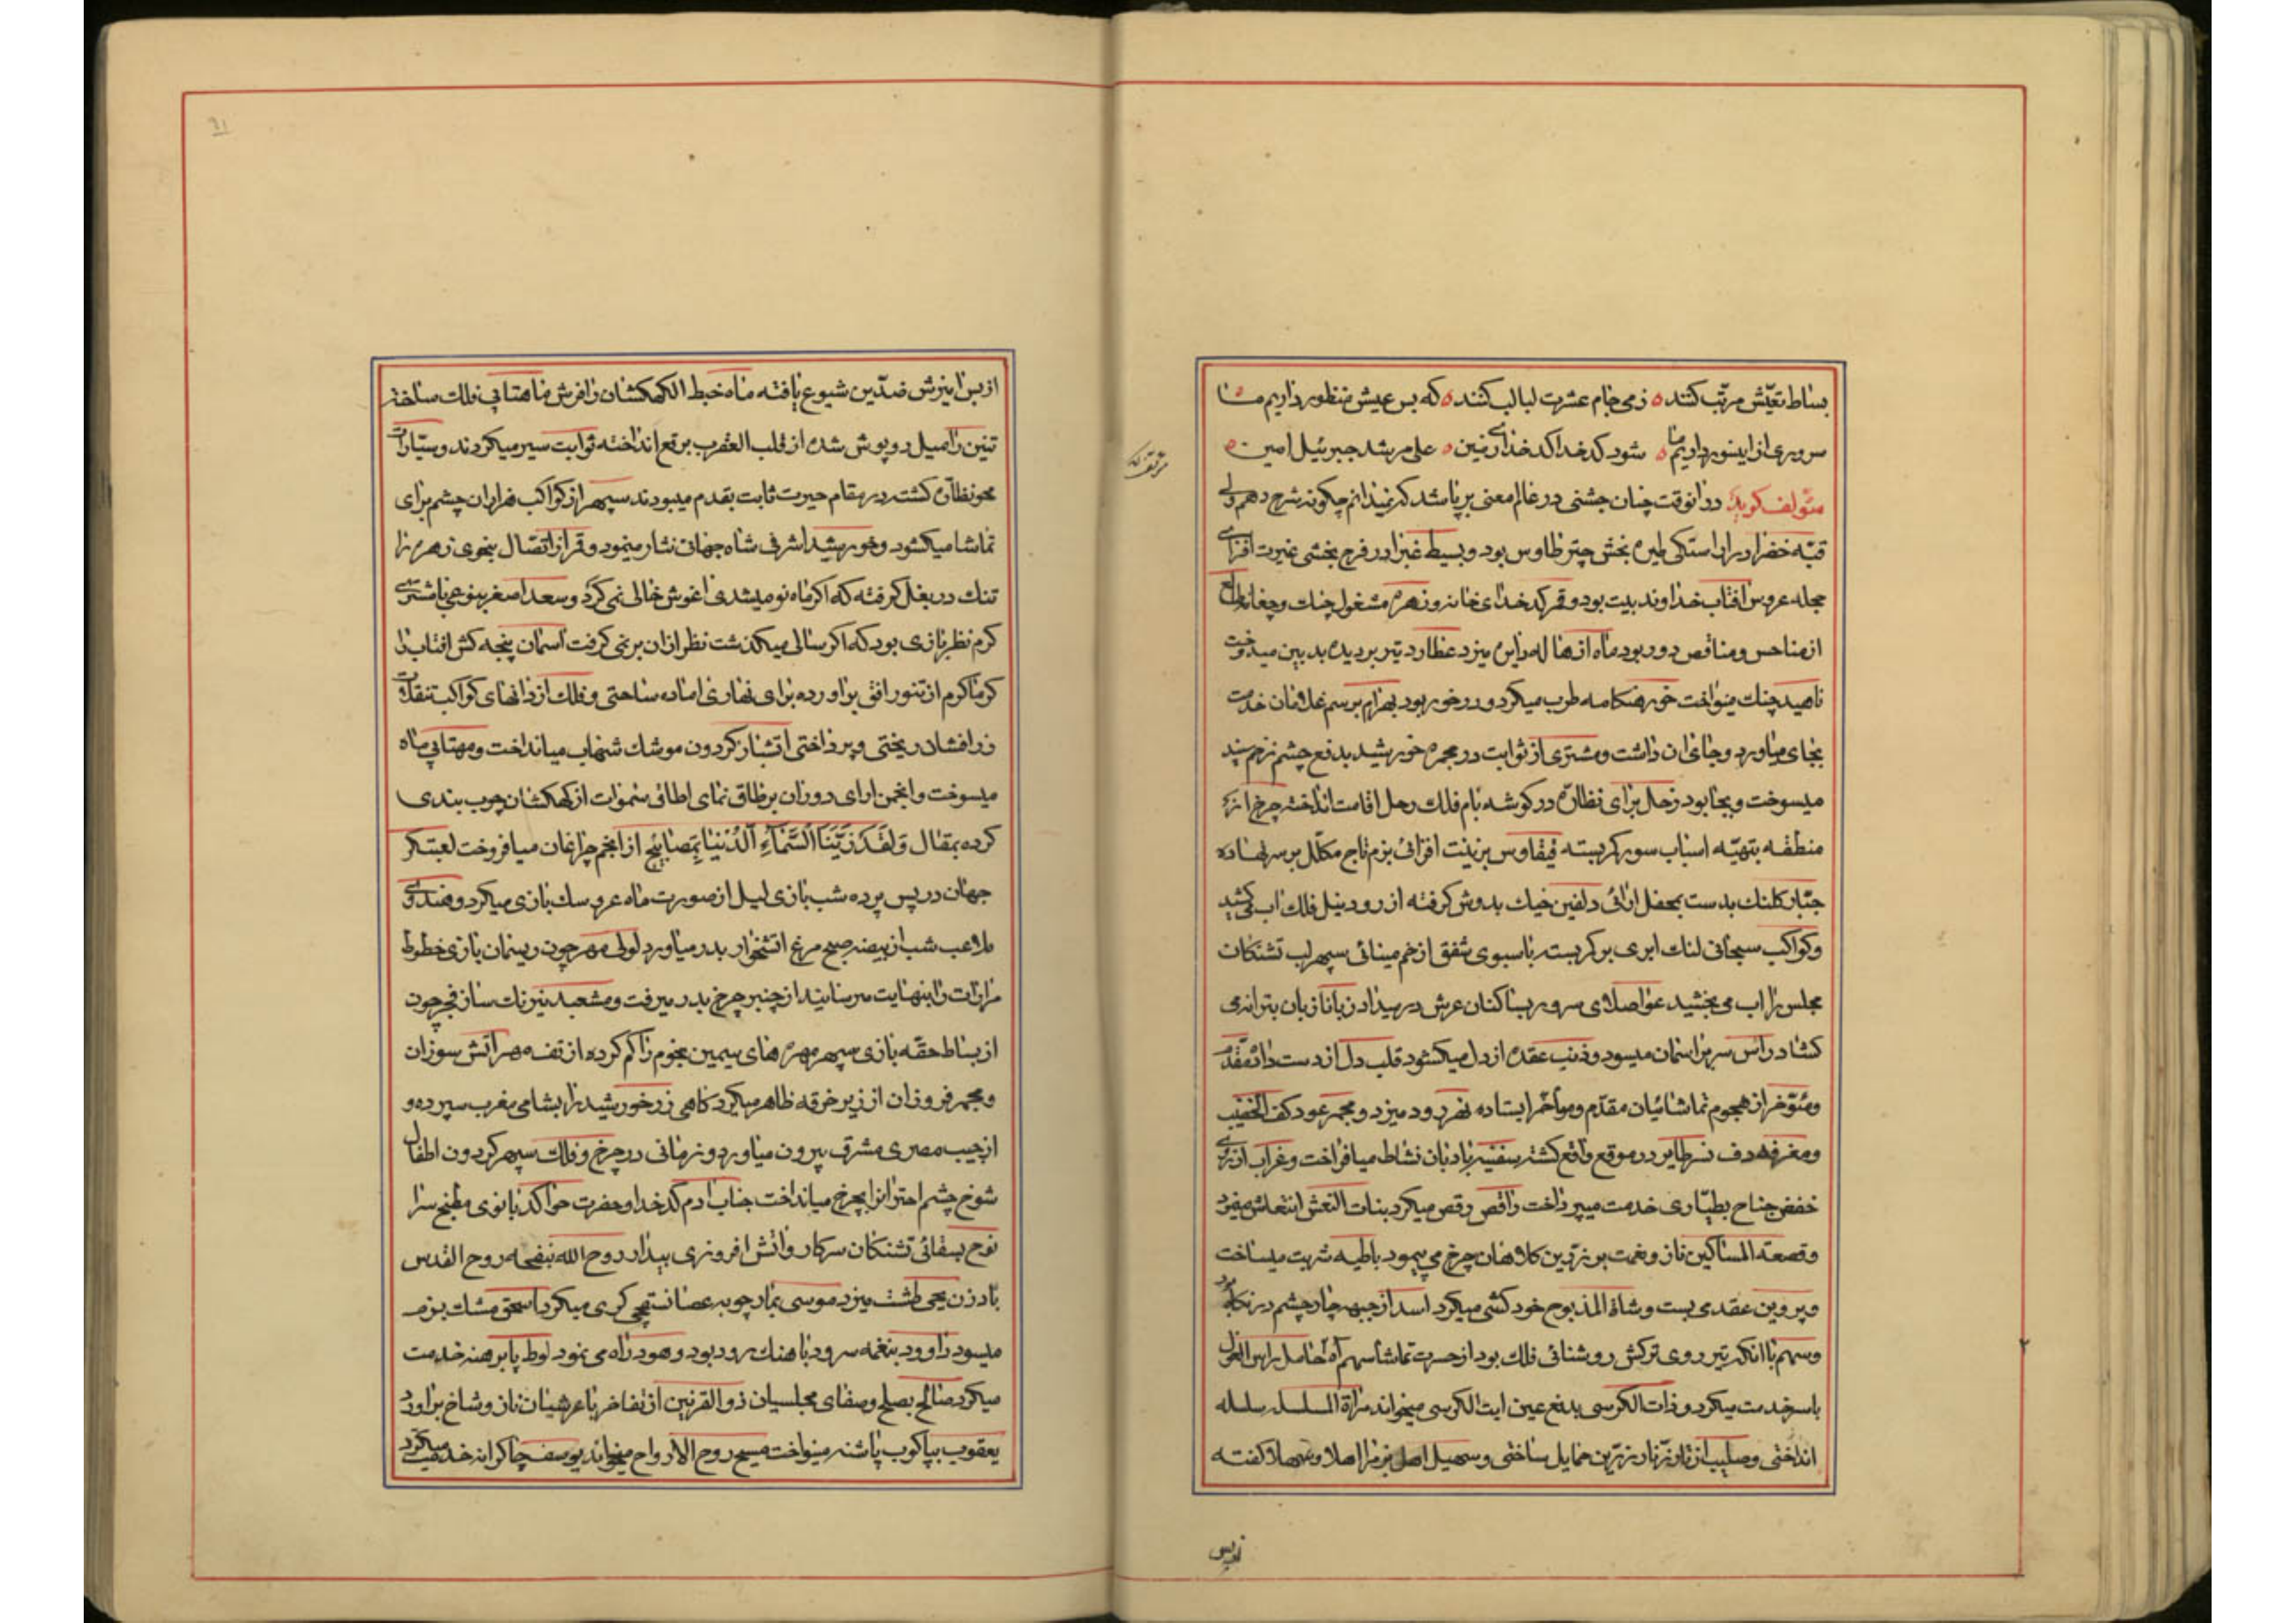 بساط تعیّش مرتّب کنند ٥ ز می جام عشرت لبالب کنند ٥ که بس عیش منظور داریم ما ٥
سروری از اینسور داریم ما ٥ شود کدخدا کدخدای زمین ٥ علی مرشد جبرئیل امین ٥
مؤلف کوید در انوقت چنان جشنی در عالم معنی بر پا شد که نمیدانم چکونه شرح دهم ولی
قبّه خضرا در اراستکی طیره بخش چتر طاوس بود و بسیط غبرا در فرح بخشی غیرت افزای
حجله عروس افتاب خداوند بیت بود و قمر کدخدای خانه و زهره مشغول چنک و چغانه طالع
از مناحس و مناقص دور بود ماه از هاله دایره میزد عطارد تیر بر دیده بد بین میدوخت
ناهید چنک مینواخت خور هنکامه طرب میکرد و در خور بود بهرام برسم غلامان خدمت
بجای میاورد و جای ان داشت و مشتری از ثوابت در مجمره خورشید بدفع چشم زخم سپند
میسوخت و بجا بود زحل برای نظاره در کوشه بام فلک رحل اقامت انداخته چرخ از
منطقه بتهیّه اسباب سور کمر بسته قیقاوس بزینت افزائی بزم تاج مکلّل بر سر نهاده
جبّار کلنک بدست بمحفل ارائی دلفین خیک بدوش کرفته از رود نیل فلک اب می کشید
و کواکب سحابی لنک ابری بر کمر بسته با سبوی شفق از خم مینائی سپهر لب تشنکان
مجلس را اب می بخشید عوا صلای سرور بساکنان عرش در میداد زبانا زبان بترانه می
کشاد راس سر بر اسمان میسود و ذنب عقده از دل میکشود قلب دل از دست داده مقدّم
و مؤخر از هجوم تماشائیان مقدّم و موأخر ایستاده نهر رود میزد و مجمر عود کف الخضیب
و مغرفه دف نسر طایر در موقع واقع کشته سفینه بادبان نشاط میافراخت و غراب از
خفض جناح بطیّاری خدمت میپرداخت راقص رقص میکرد بنات النعش انتعاش مینمود
و قصعة المساکین ناز و نعمت بر زرّین کلاهان چرخ می پیمود باطیه شربت میساخت
و پروین عقدی بست و شاة المذبوح خود کشی میکرد اسد از جبهه چار چشم در نکاه بود
و سهم با انکه تیر روی ترکش روشنائی فلک بود از حسرت تماشا سهم آه حامل راس الغول
با سر خدمت میکرد و ذات الکرسی بدفع عین ایت الکرسی میخواند مراة المسلسله سلسله
انداختی و صلیب از تار زنّار زرّین حمایل ساختی و سهیل اهل بزم را اهلا و سهلا کفته
از بس
از بس امیزش ضدّین شیوع یافته ماه خبط الکهکشان را فرش ماهتابی فلک ساخته
تنین را میل روپوش شده از قلب العقرب برقع انداخته ثوابت سیر میکردند و سیّارات
محو نظاره کشته در مقام حیرت ثابت بقدم میبودند سپهر از کواکب هزاران چشم برای
تماشا میکشود و خورشید اشرفی شاه جهان نثار مینمود و قمر از اتصال بنحوی زهره را
تنک در بغل کرفته که اکر ماه نو میشدی اغوش خالی نمی کرد و سعد اصغر بنوعی با مشتری
کرم نظر بازی بود که اکر سالی میکذشت نظر ازان بر نمی کرفت اسمان پنجه کش افتاب را
کرما کرم از تنور افق براورده برای نهاری اماده ساختی و فلک از دانهای کواکب تنقلات
زر افشان ریختی و پرداختی اتشبار کردون موشک شهاب میانداخت و مهتابی ماه
میسوخت و انجمن ارای دوران بر طاق نمای اطاق سموات از کهکشان چوب بندی
کرده بمقال وَلَقَدْ زَیَّنَّا السَّمَآءَ الدُّنْیَا بِمَصَابِیْحَ از انجم چراغان میافروخت لعبتکر
جهان در پس پرده شب بازی لیل از صورت ماه عروسک بازی میکرد و هندوی
ملاعب شب از بیضه صبح مرغ اتشخوار بدر میاورد لولی مهر چون ریسمان بازی خطوط
مدارات را بنهایت میرسانید از چنبر چرخ بدر میرفت و مشعبد نیرنک ساز فجر چون
از بساط حقّه بازی سپهر مهره های سیمین نجوم را کم کرده از تفه مهر اتش سوزان
و مجمر فروزان از زیر خرقه ظاهر میکرد کاهی زر خورشید را بشامی مغرب سپرده و
از جیب مصری مشرق بیرون میاورد و زمانی در چرخ و فلک سپهر کردون اطفال
شوخ چشم اختران را بچرخ میانداخت جناب ادم کدخدا و حضرت حوا کدبانوی مطبخ سرا
نوح بسقائی تشنکان سرکار و اتش افروزی بیدار روح الله بنفحه روح القدس
باد زن یحیی طشت میزد موسی بمار چوبه عصا نسقچی کری میکرد اسحق مشک بزم
میسود داود بنغمه سرود با هنک رود بود و هود راه می نمود لوط پا برهنه خدمت
میکرد صالح بصلح و صفای مجلسیان ذو القرنین از تفاخر با عرشیان ناز و شاخ براورد
یعقوب بپاکوب پاشنه مینواخت مسیح روح الارواح میخواند یوسف چاکرانه خدمت میکرد